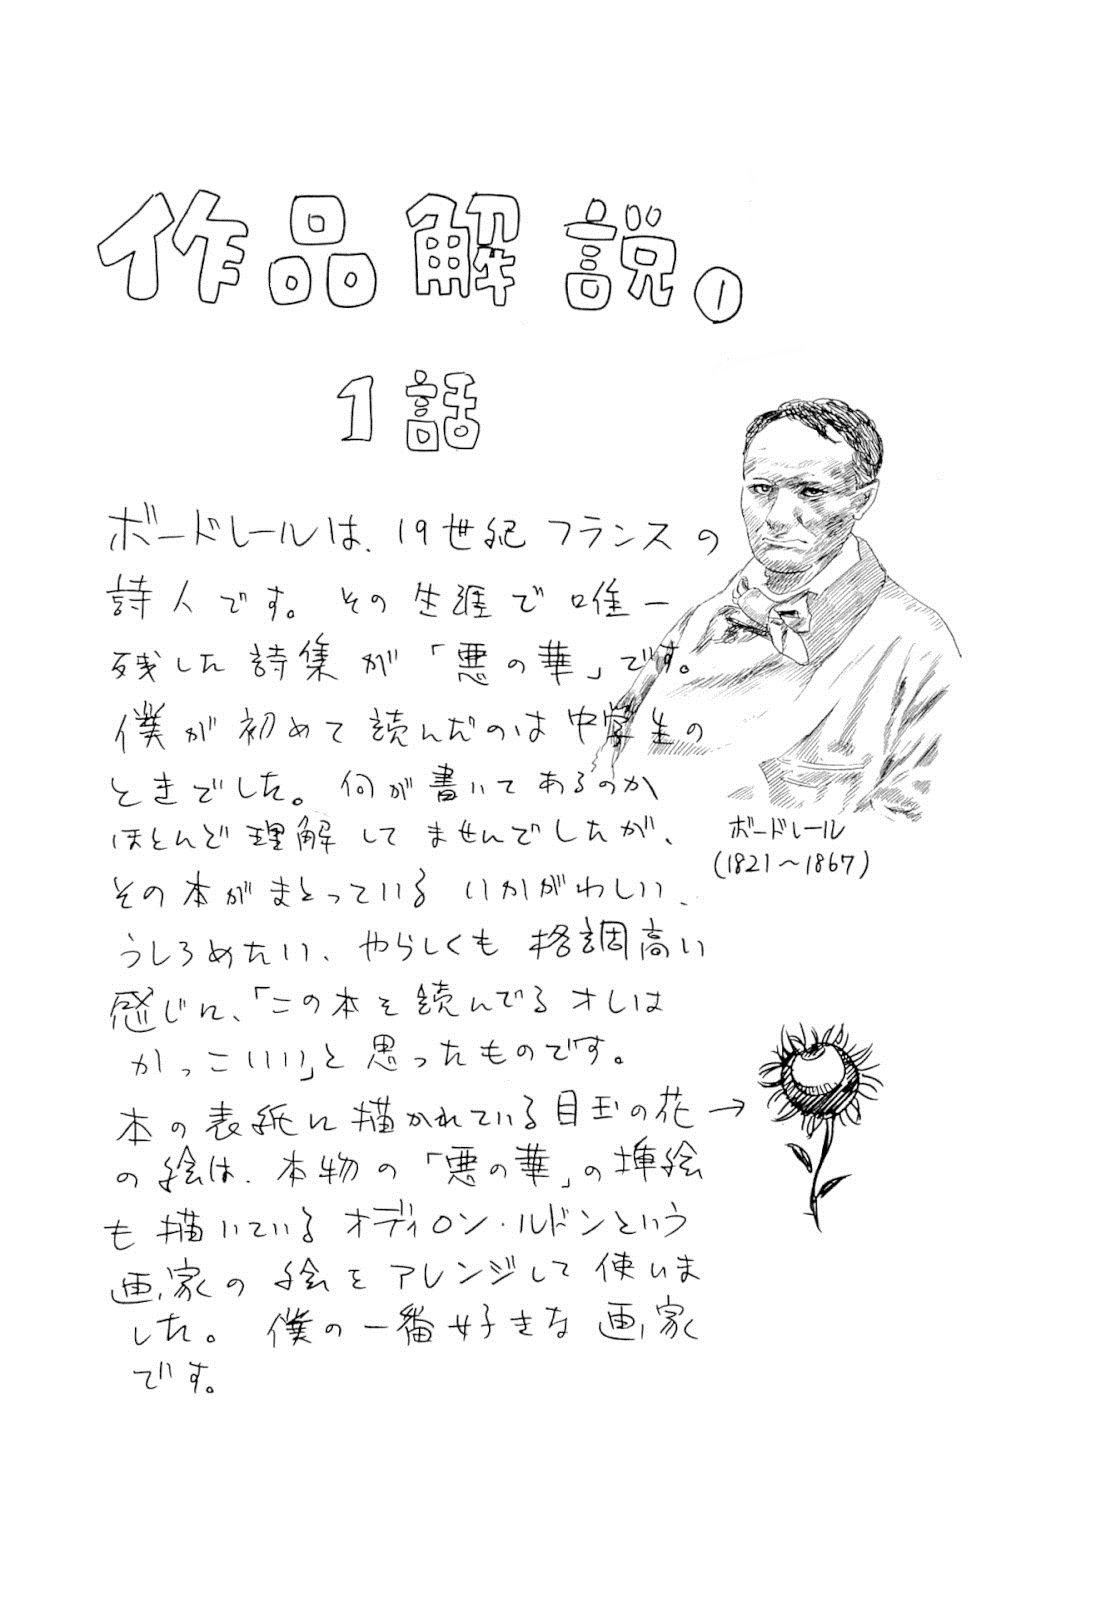 作品解説。①
1話
ボードレールは、19世紀フランスの
詩人です。その生涯で唯一
残した詩集が「悪の華」です。
僕が初めて読んだのは中学生の
ときでした。何が書いてあるのか
ほとんど理解してませんでしたが、
その本がまとっているいかがわしい、
うしろめたい、やらしくも格調高い
感じに、「この本を読んでるオレは
かっこいい」と思ったものです。
本の表紙に描かれている目玉の花→
の絵は、本物の「悪の華」の挿絵
も描いているオディロン・ルドンという
画家の絵をアレンジして使いま
した。僕の一番好きな画家
です。
ボードレール
(1821～1867)